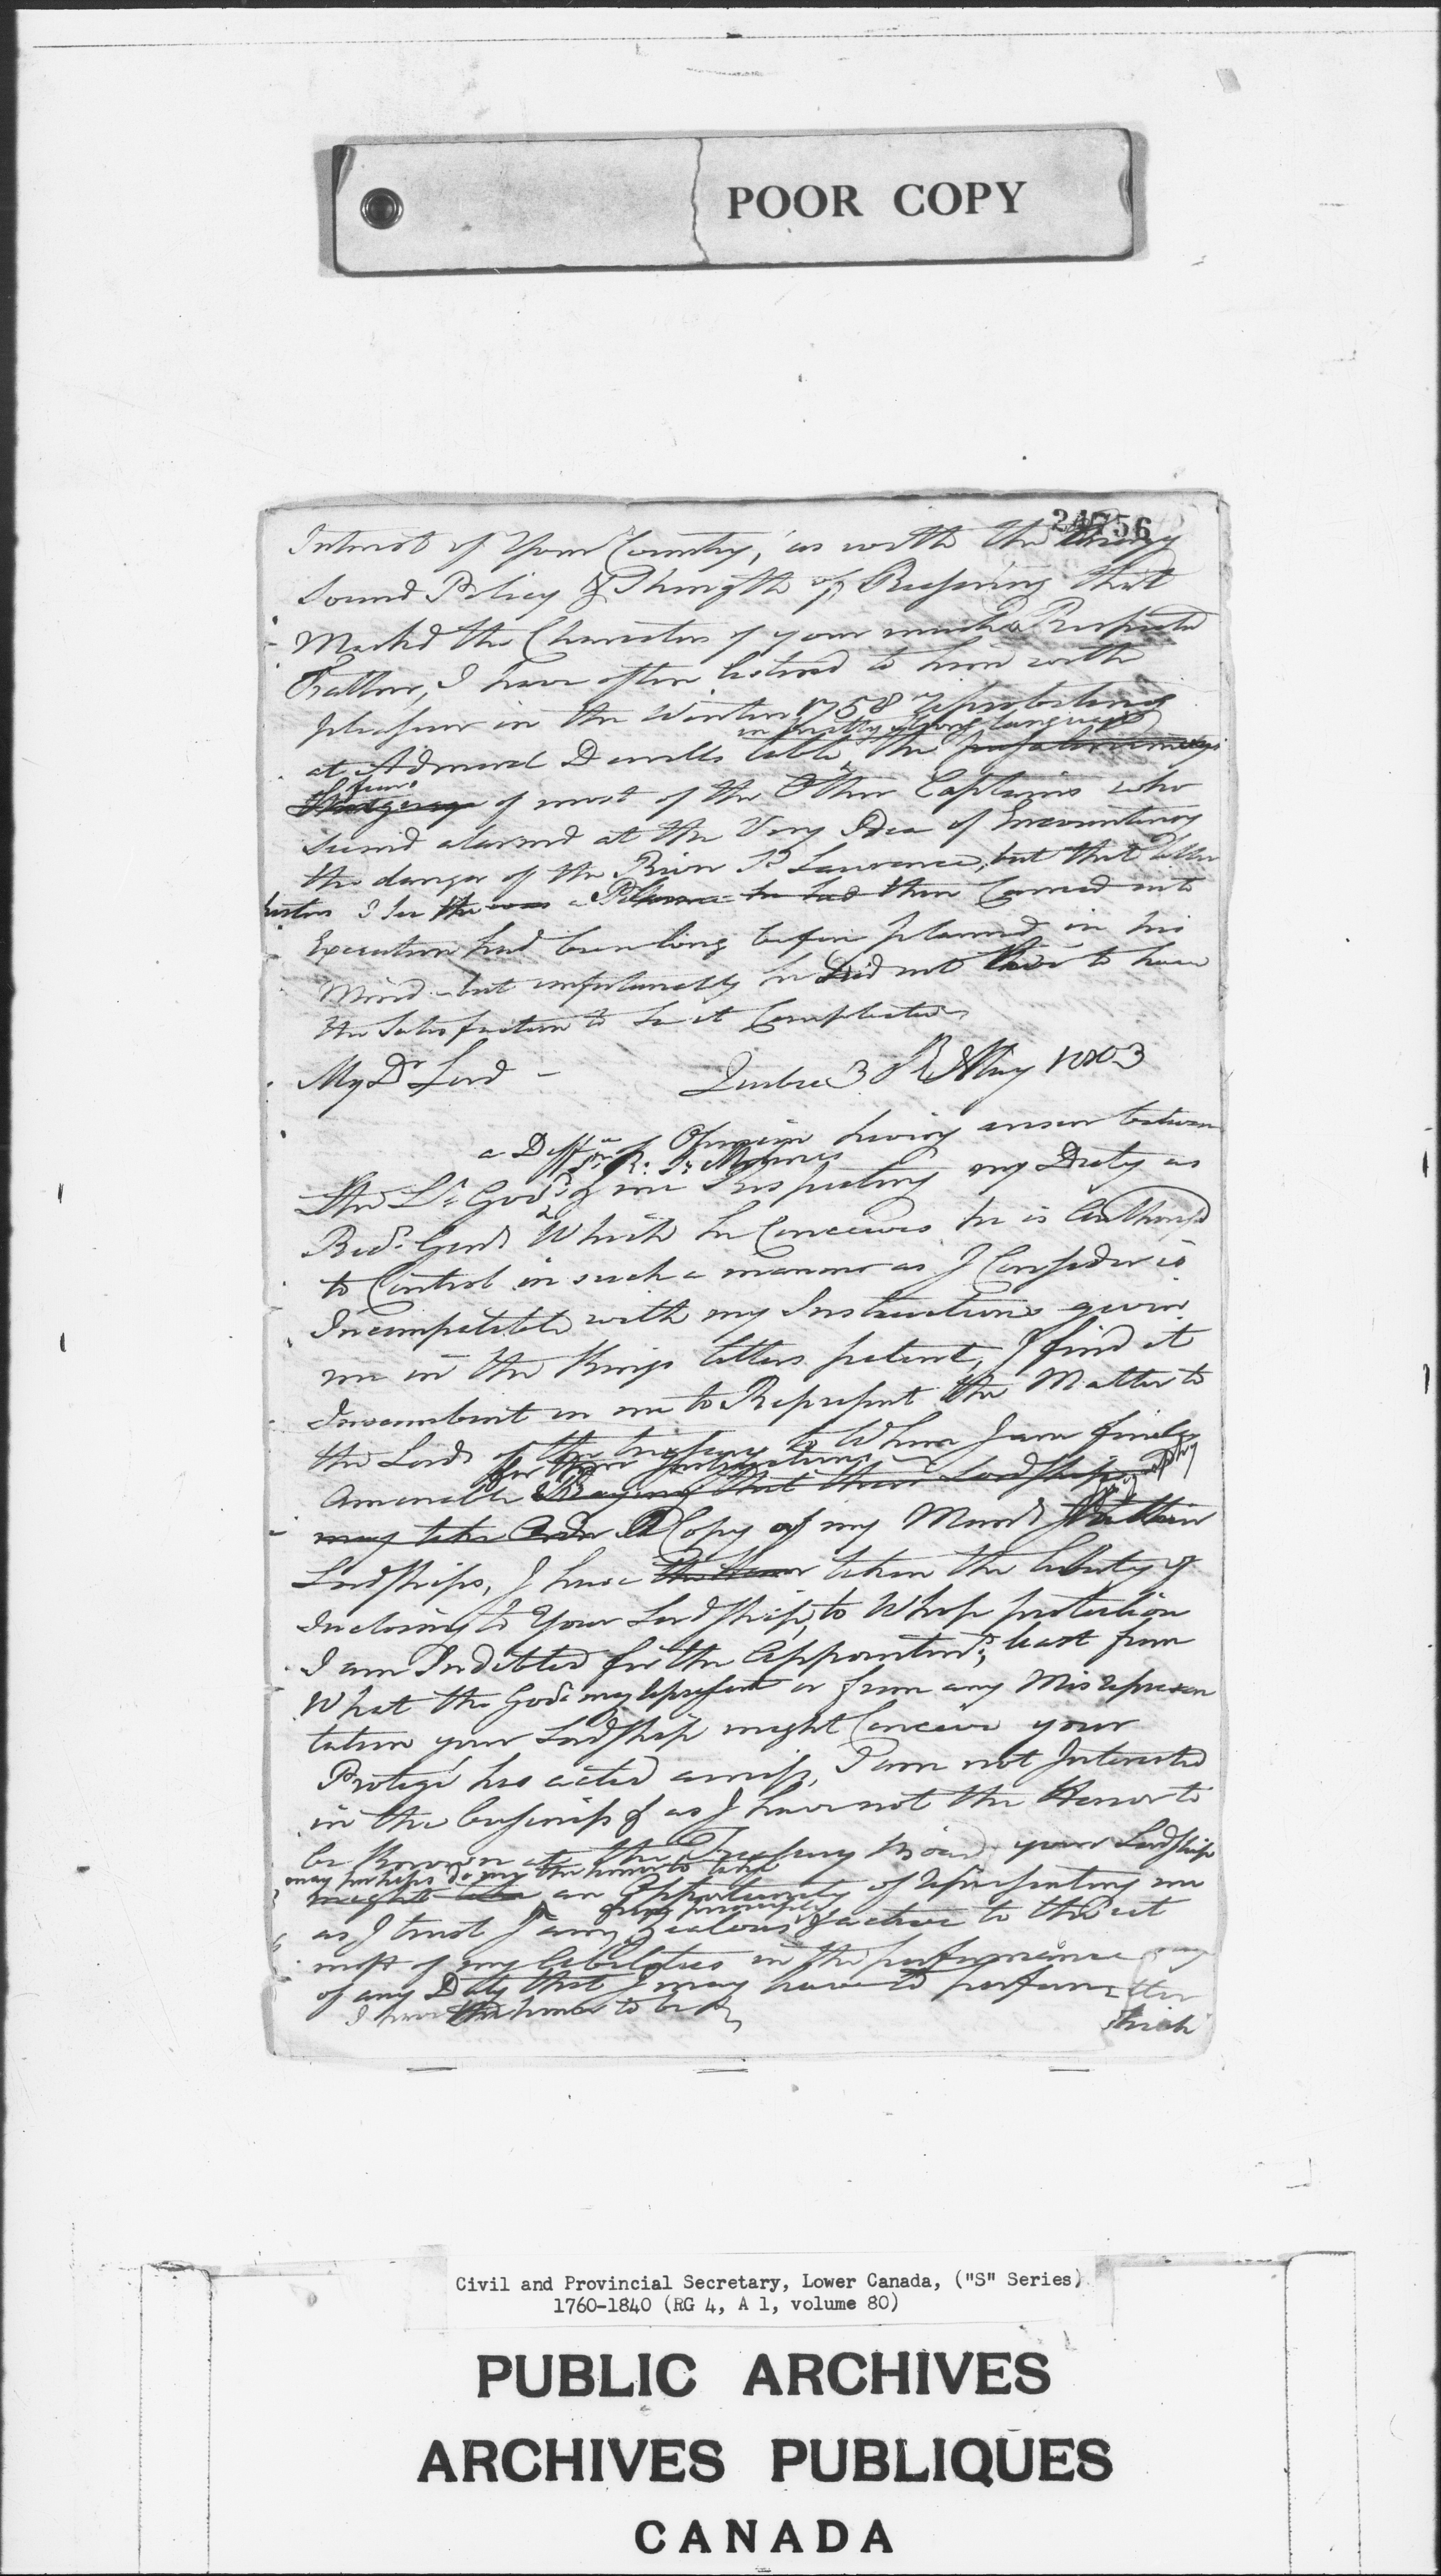 POOR COPY
24756
Interest of Your Country, as with the
Sound Policy & Strength of Reasoning that
Marked the Character of your much Respected
Father, I have often listned to him with
pleasure in the Winter 1758 reprobating
in pretty strong language
at Admiral Durells table, the
fears
of most of the Other Captains who
seemd alarmed at the Very Idea of Encountering
the danger of the River St Lawrence, but that
I see the was a he had then Carried into
Execution had been long before planned in his
Mind - but unfortunately he did not live to have
the Satisfaction to see it Compleated
My Dr Lord - Quebec 3 May 1803
a Diffce of Opinion having arisen between
Sr R: S: Milnes
the Lt Govr & me Respecting my Duty as
Recr Genl Which he Conceives he is Authorisd
to Control in such a manner as I Consider is
Incompatible with my Instructions given
me in the Kings letters patent, I find it
Incumbent on me to Represent the Matter to
the Lords of the treasury to Whom I am finaly
for their Instructions
Amenable Praying that their Lordships
may take Order A Copy of my Meml to their
Lordships, I have the Honor taken the liberty of
Inclosing to Your Lordship, to Whose protection
I am Indebted for the Appointmt, least from
What the Govr may represent or from any Misrepresen
tation your Lordship might Conceive your
Protegé has acted amiss, I am not Interested
in the business & as I have not the Honor to
be Known at the Treasury Board your Lordship
may perhaps do me the honor to take
might take an Opportunity of representing me
as I trust I am, zealous & active to the ut
most of my Abilities in the performance
of any Duty that I may have to perform
I have the honor to be &c
which
Civil and Provincial Secretary, Lower Canada, ("S" Series)
1760-1840 (RG 4, A 1, volume 80)
PUBLIC ARCHIVES
ARCHIVES PUBLIQUES
CANADA